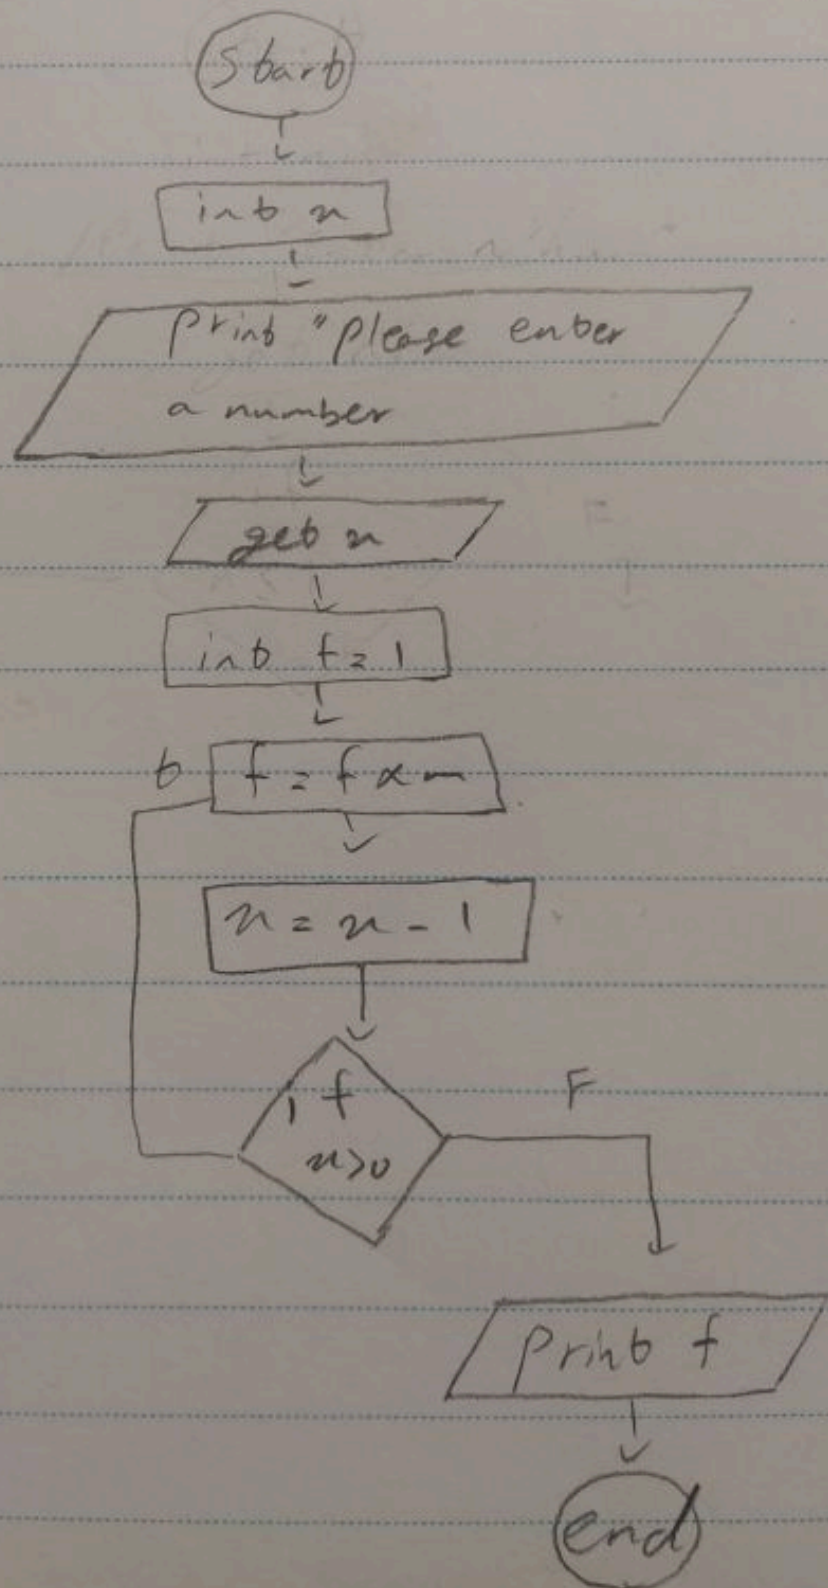 Start
int n
print "please enter
a number
get n
int f = 1
t
f = f x n
n = n - 1
if
n>0
F
print f
end